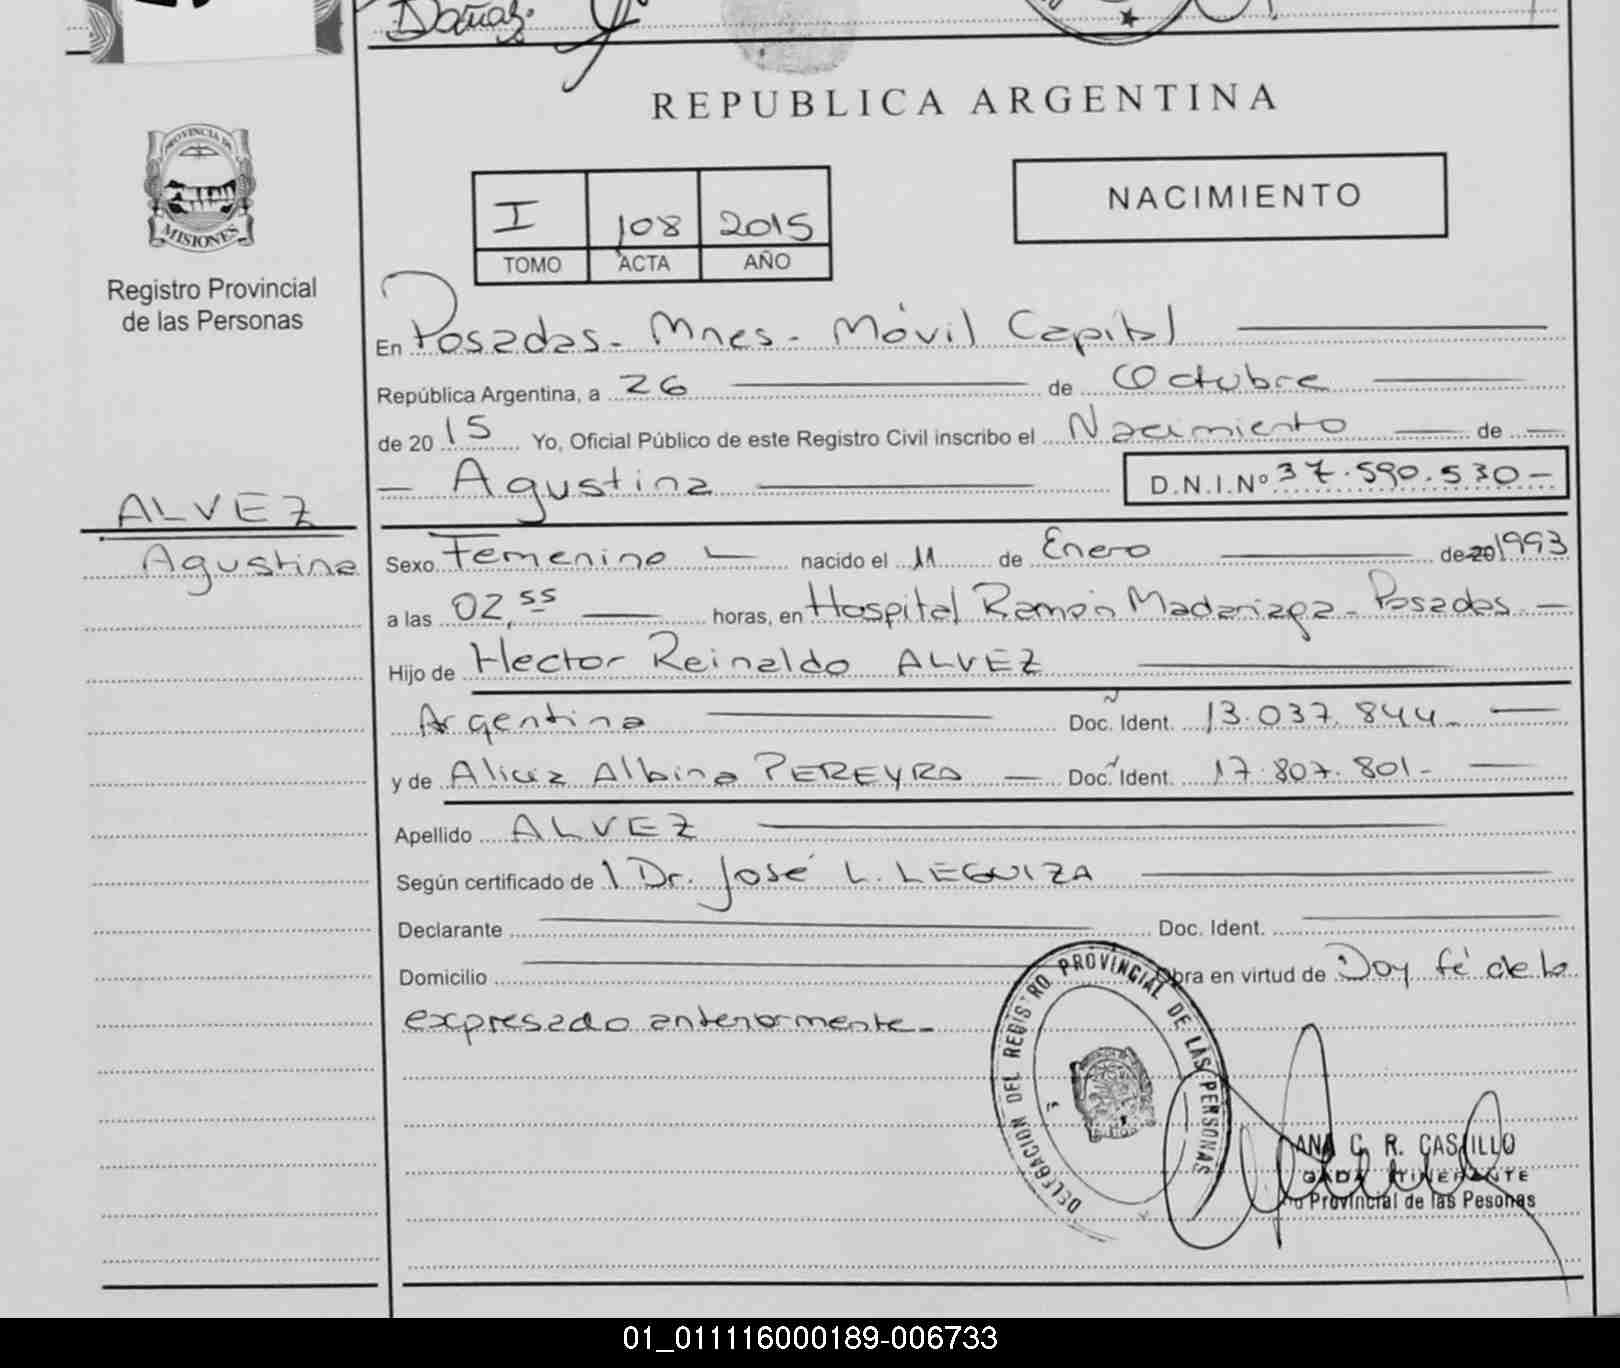 Dañaz.
REPUBLICA ARGENTINA
PROVINCIA DE
MISIONES
Registro Provincial
de las Personas
I 108 2015
TOMO ACTA AÑO
NACIMIENTO
En Posadas - Mnes - Móvil Capital
República Argentina, a 26 de Octubre
de 2015 Yo, Oficial Público de este Registro Civil inscribo el Nacimiento de
Agustina D.N.I.Nº 37.590.530-
ALVEZ
Agustina
Sexo Femenino nacido el 11 de Enero de 20 1993
a las 02,55 horas, en Hospital Ramón Madariaga - Posadas
Hijo de Hector Reinaldo ALVEZ
Argentina Doc. Ident. 13.037.844-
y de Alicia Albina PEREYRA Doc. Ident. 17.807.801-
Apellido ALVEZ
Según certificado de 1 Dr. José L. LEGUIZA
Declarante Doc. Ident.
Domicilio Obra en virtud de Doy fé de lo
expresado anteriormente-
DELEGACION DEL REGISTRO PROVINCIAL DE LAS PERSONAS
ANA C. R. CASTILLO
GADA ITINERANTE
Provincial de las Pesonas
01_011116000189-006733